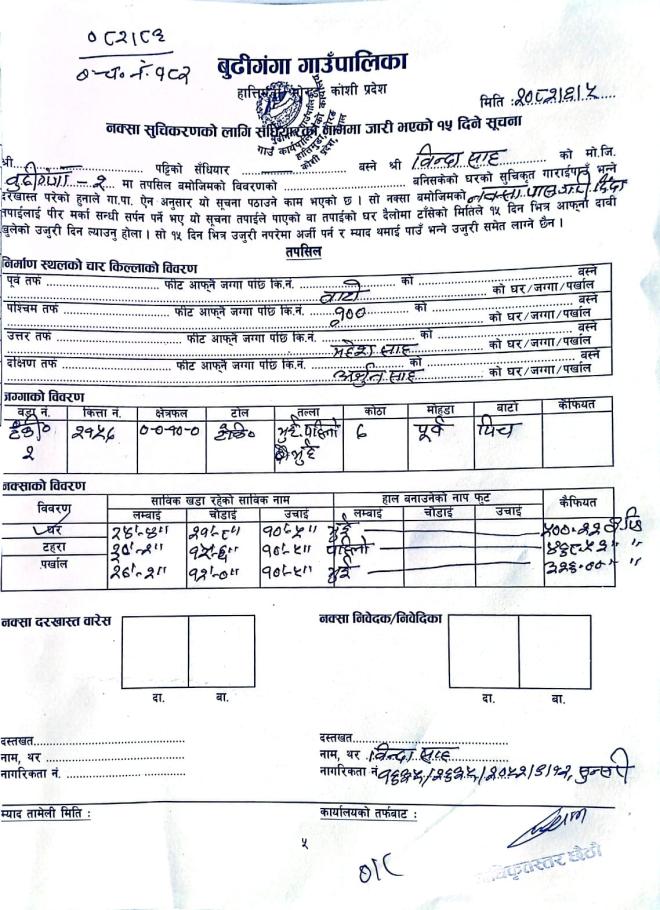 ०८२।८३
च.नं.१८२
बुढीगंगा गाउँपालिका
कोशी प्रदेश
मिति :२०८२।६।५
नक्सा सुचिकरणको लागि संधियारको नाममा जारी भएको १५ दिने सूचना
श्री पट्टिको सँधियार बस्ने श्री विन्दा साह को मो.जि.
बुढीगंगा - २ मा तपसिल बमोजिमको विवरणको बनिसकेको घरको सुचिकृत गराईपाउँ भन्ने
दरखास्त परेको हुनाले गा.पा. ऐन अनुसार यो सूचना पठाउने काम भएको छ । सो नक्सा बमोजिमको नक्सा पास गरी दिंदा
तपाईलाई पीर मर्का सन्धी सर्पन पर्ने भए यो सूचना तपाईले पाएको वा तपाईको घर दैलोमा टाँसेको मितिले १५ दिन भित्र आफूना दावी
खुलेको उजुरी दिन ल्याउनु होला । सो १५ दिन भित्र उजुरी नपरेमा अर्जी पर्न र म्याद थमाई पाउँ भन्ने उजुरी समेत लाग्ने छैन ।
तपसिल
निर्माण स्थलको चार किल्लाको विवरण
पूर्व तर्फ फीट आफ्नै जग्गा पछि कि.नं. को बस्ने
बाटो को घर/जग्गा/पर्खाल
पश्चिम तर्फ फीट आफ्नै जग्गा पछि कि.नं. १०० को बस्ने
को घर/जग्गा/पर्खाल
उत्तर तर्फ फीट आफ्नै जग्गा पछि कि.नं. को बस्ने
महेश साह को घर/जग्गा/पर्खाल
दक्षिण तर्फ फीट आफ्नै जग्गा पछि कि.नं. को बस्ने
अर्जुन साह को घर/जग्गा/पर्खाल
जग्गाको विवरण
वडा नं. कित्ता नं. क्षेत्रफल टोल तल्ला कोठा मोहडा बाटो कैफियत
०-०-१०-० भुई पहिलो ६ पूर्व पिच
२ भुई
नक्साको विवरण
विवरण साविक खडा रहेको साविक नाम हाल बनाउनेको नाप फुट कैफियत
लम्बाई चौडाई उचाई लम्बाई चोडाई उचाई
घर २९'-८" १०'-५" भुई
टहरा १०'-५" पहिलो
पर्खाल २६'-२" १२'-०" १०'-५" भुई ३२६.००
नक्सा दरखास्त वारेस नक्सा निवेदक/निवेदिका
दा. बा. दा. बा.
दस्तखत दस्तखत
नाम, थर नाम, थर विन्दा साह
नागरिकता नं. नागरिकता नं सुन्सरी
म्याद तामेली मिति : कार्यालयको तर्फबाट :
५